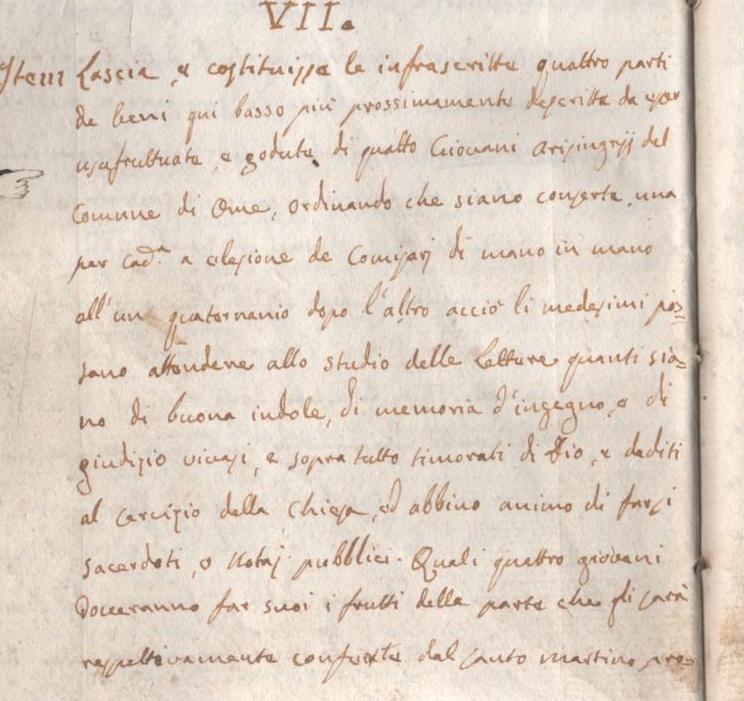 VII.
Item Lascia, e costituisse le infrascritte quattro parti
de beni qui basso più prossimamente descritte da esser
usufruttuate, e godute, di quatto Giovani Orig.rij del
Comune di Ome, ordinando che siano conferte, una
per Cad.a a elezione de Comissarj di mano in mano
all'un quaternario dopo l'altro acciò li medesimi pos=
sano attendere allo studio delle Lettere quanti sia=
no di buona indole, di memoria d'ingegno, e di
giudizio vivazi, e sopra tutto timorati di Dio, e dediti
al servizio della Chiesa, ed abbino animo di farsi
sacerdoti, o Notaj pubblici. Quali quattro giovani
doveranno far suoi i frutti della parte che gli sarà
respettivamente conferta dal santo martino pro=